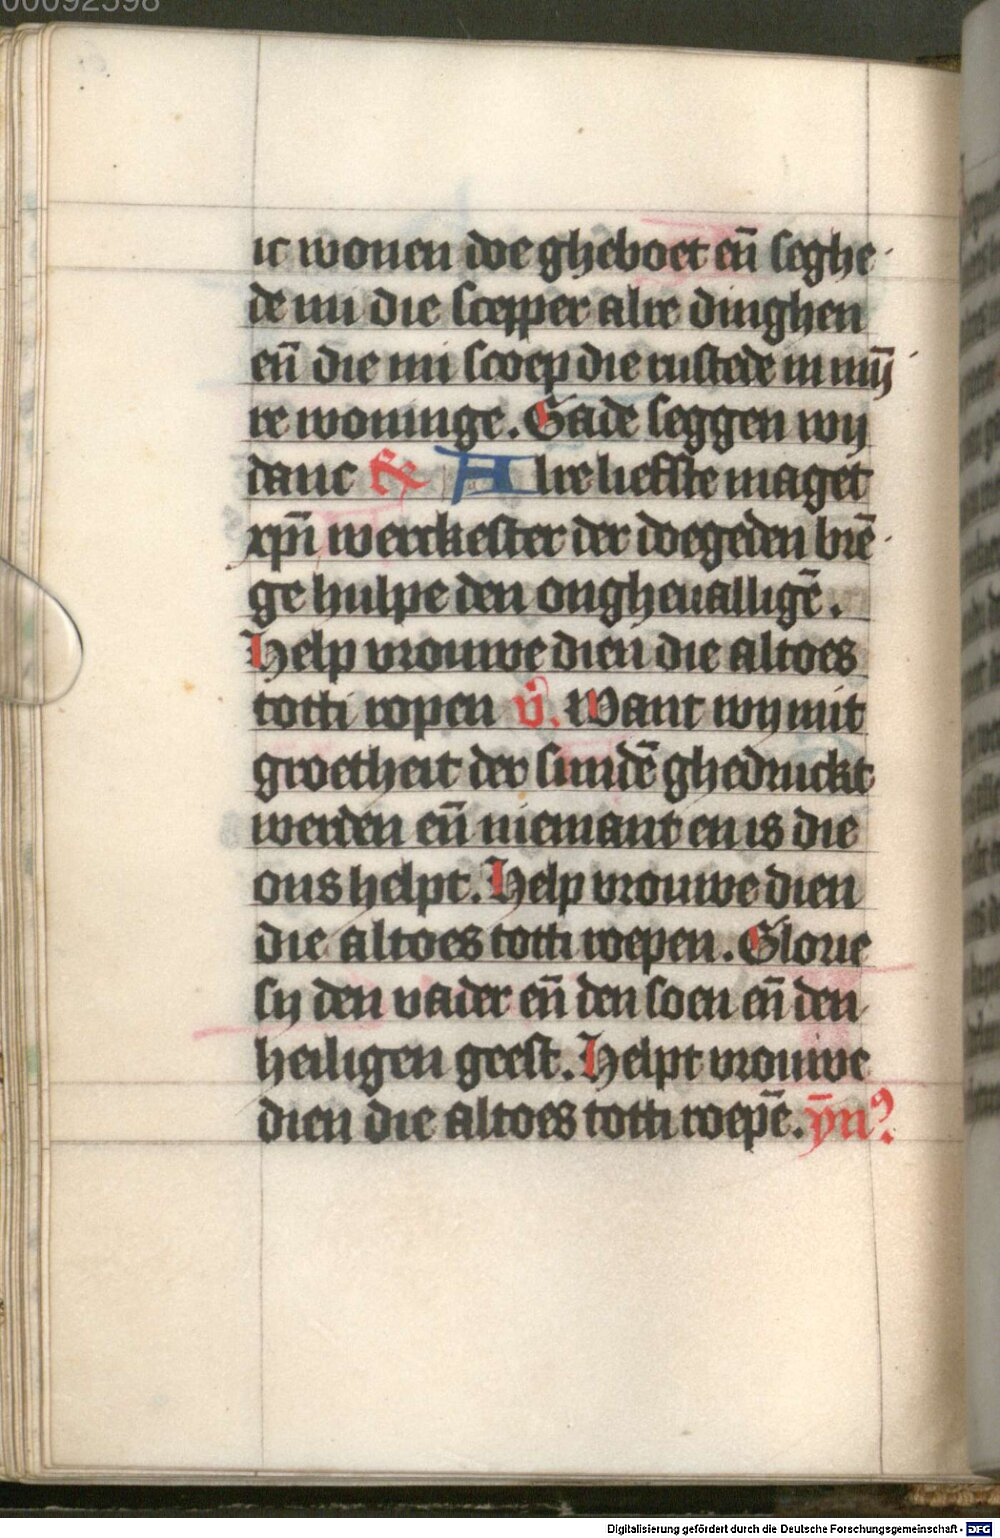 00092598
ic wonen doe gheboet en̄ seghe
de mi die scepper alre dinghen
en̄ die mi scoep die rustede in mijn̄
re woninge. Gade seggen wij
danc R Alre liefste maget
xp̄i werckester der doegeden brē
ge hulpe den ongheualligē.
Help vrouwe dien die altoes
totti ropen v̄. Want wij mit
groetheit der sundē ghedruckt
werden en̄ niemant en is die
ons helpt. Help vrouwe dien
die altoes totti roepen. Glorie
sij den vader en̄ den soen en̄ den
heiligen geest. Helpt vrouwe
dien die altoes totti roepē. ȳn
Digitalisierung gefördert durch die Deutsche Forschungsgemeinschaft - DFG